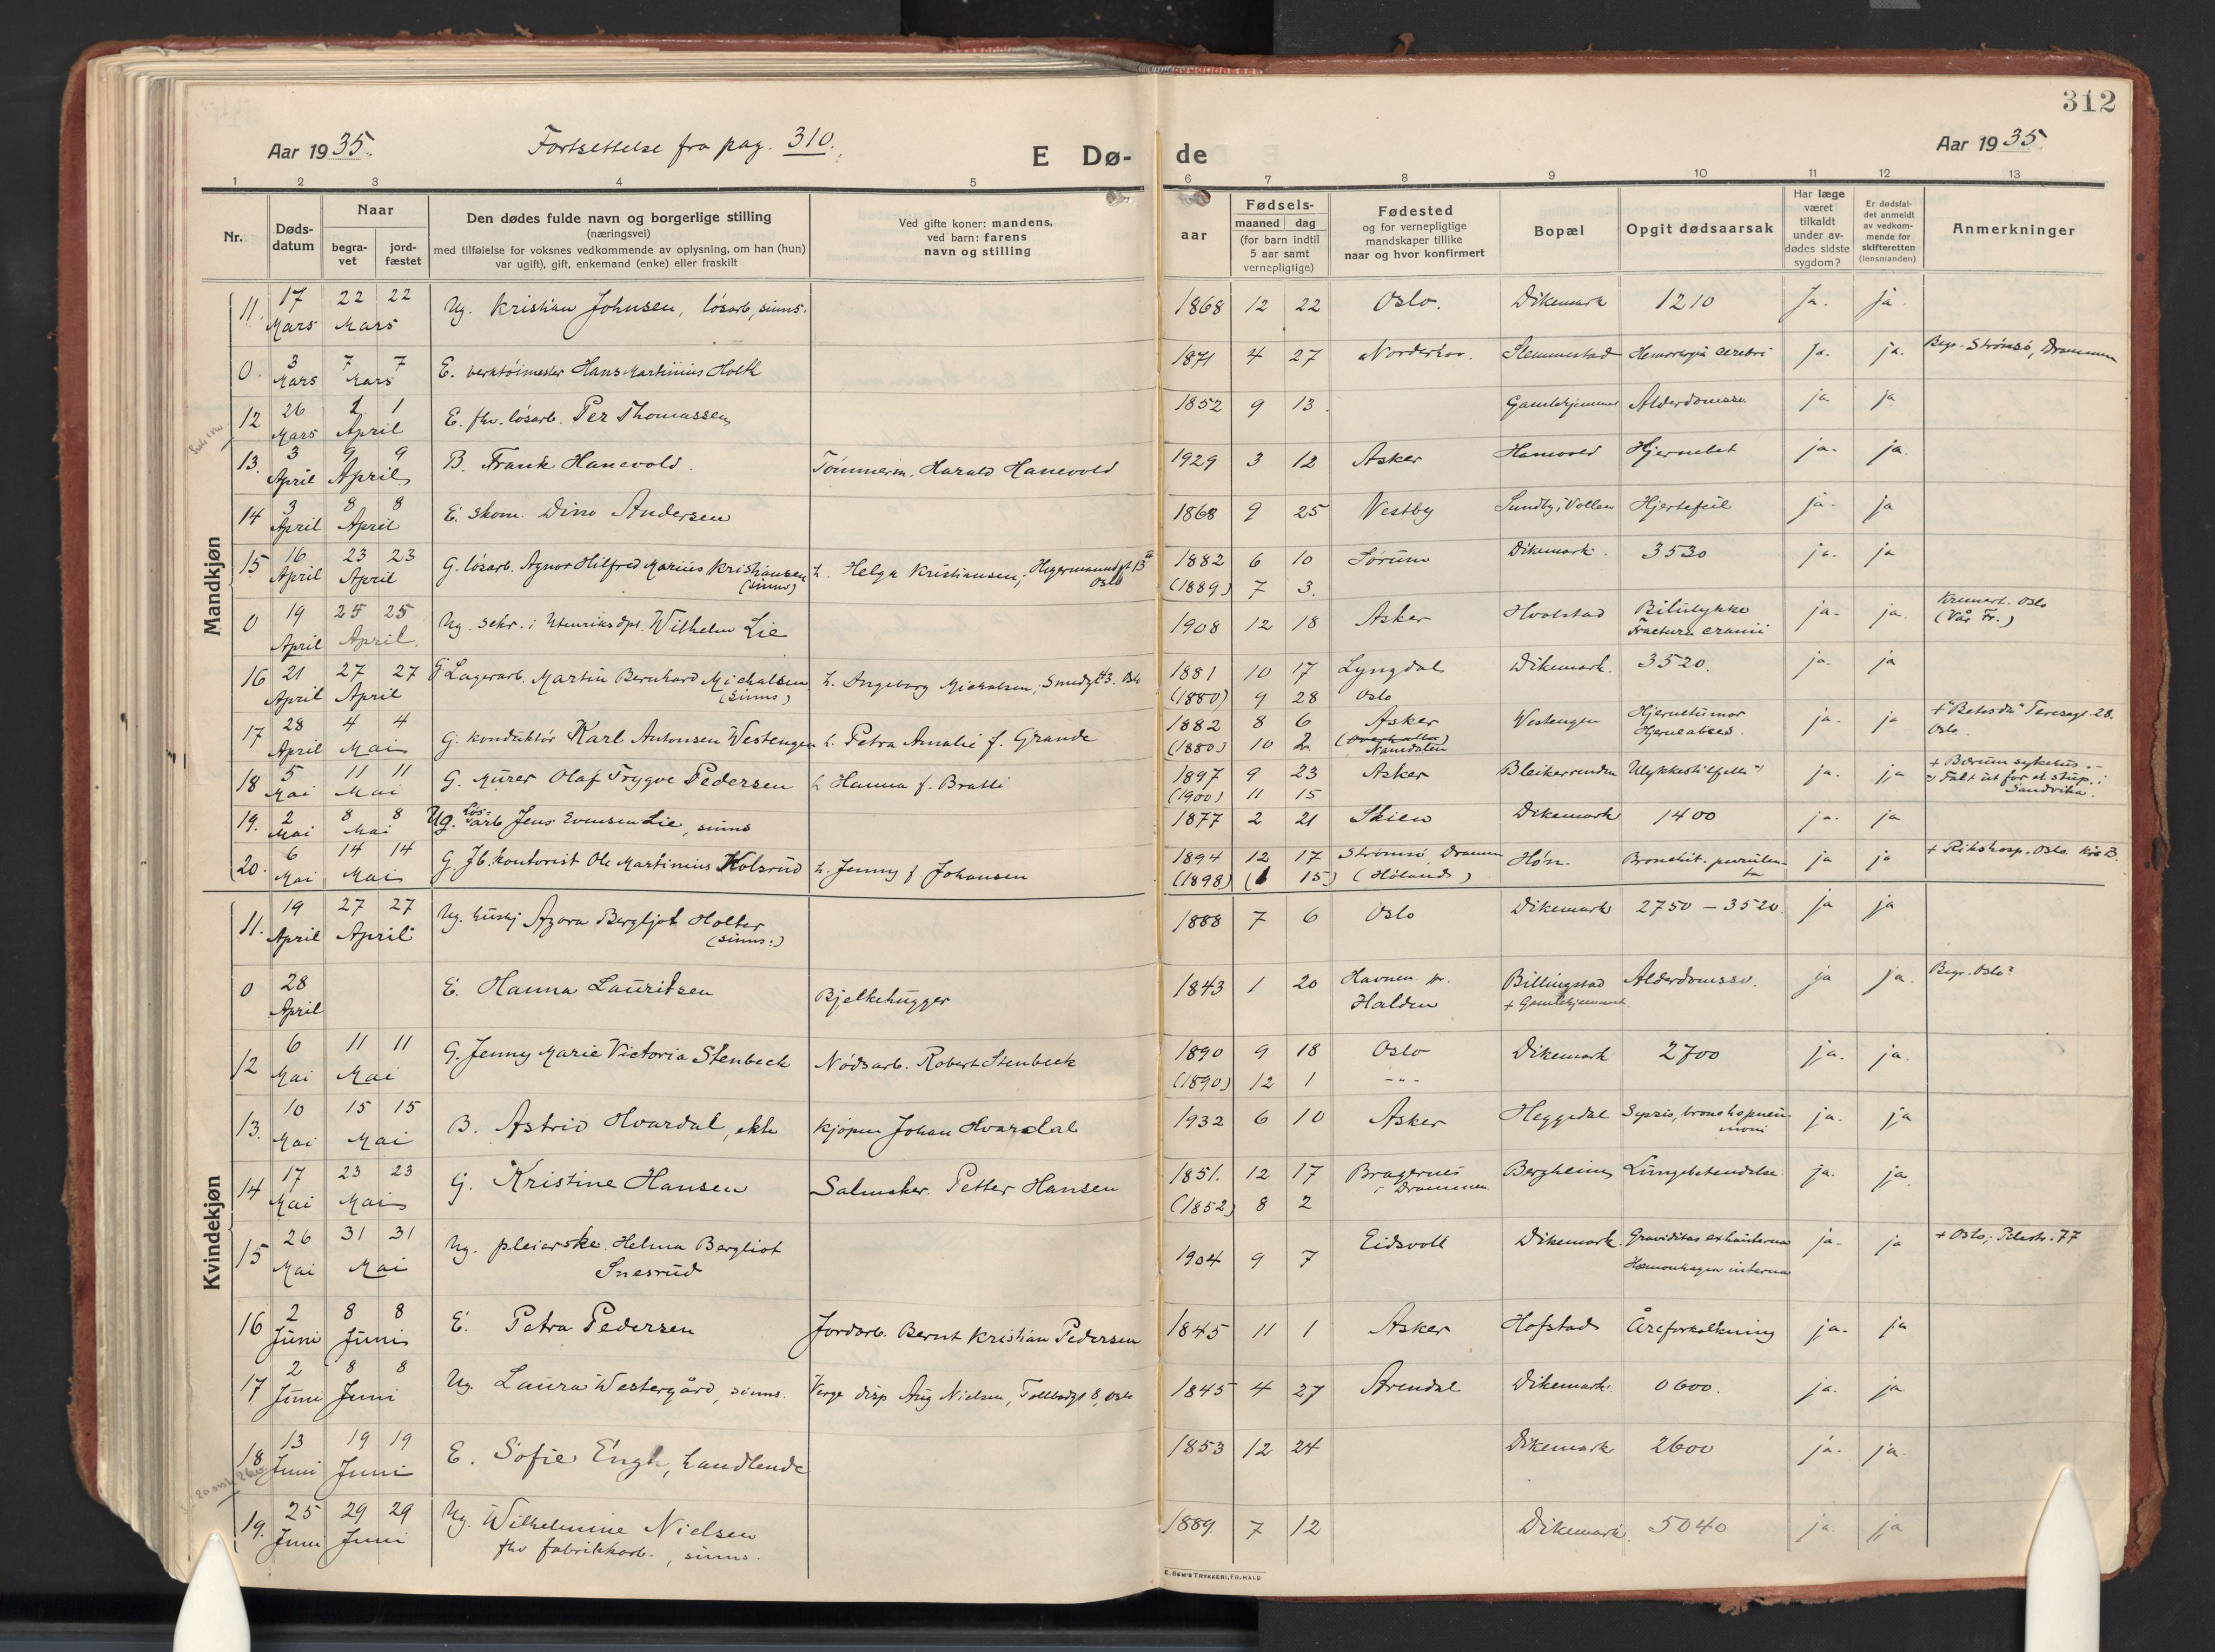 312
Aar 1935. Fortsettelse fra pag. 310. E Dø- de Aar 1935
1 2 3 4 5 6 7 8 9 10 11 12 13
Nr. Dødsdatum Naar begravet jordfæstet
Den dødes fulde navn og borgerlige stilling
(næringsvei)
med tilføielse for voksnes vedkommende av oplysning, om han (hun)
var ugift), gift, enkemand (enke) eller fraskilt
Ved gifte koner: mandens,
ved barn: farens
navn og stilling
aar
Fødsels-
maaned dag
(for barn indtil
5 aar samt
vernepligtige)
Fødested
og for vernepligtige
mandskaper tillike
naar og hvor konfirmert
Bopæl
Opgit dødsaarsak
Har læge
været
tilkaldt
under av-
dødes sidste
sygdom?
Er dødsfal-
det anmeldt
av vedkom-
mende for
skifteretten
(lensmanden)
Anmerkninger
Mandkjøn
11. 17 Mars 22 22 Mars Ug. Kristian Johnsen, løsarb., sinns. 1868 12 22 Oslo. Dikemark 1210 Ja. ja
0. 3 Mars 7 7 Mars E. verktøimester Hans Martinius Holth 1871 4 27 Norderhov. Slemmestad Hemorrhgia cerebri Ja. ja. Begr. Strømsø, Drammen
12 26 Mars 1 1 April E. fhv. løsarb. Per Thomassen 1852 9 13. Gamlehjemmet Alderdomssv. ja ja
13. 3 April 9 9 April B. Frank Hanevold. Tømmerm. Harald Hanevold 1929 3 12 Asker Hanevold Hjernebet ja. ja.
14 3 April 8 8 April E. skom. Dino Andersen 1868 9 25 Vestby Sundby, Vollen Hjertefeil ja. ja
15 16 April 23 23 April G. løsarb. Agnor Hilfred Marius Kristiansen (sinns) h. Helga Kristiansen; Hegermannsgt 13 Oslo 1882 6 10 Sørum Dikemark. 3530 ja. ja
(1889) 7 3.
0 19 April 25 25 April. Ug. sekr. i Utenriksdpt. Wilhelm Lie 1908 12 18 Asker Hvalstad Bilulykke Fractura cranii ja. ja. Kremert. Oslo (Vår Fr.)
16 21 April 27 27 April G Lagerarb. Martin Bernhard Michalsen (sinns) h. Ingeborg Michalsen; Smedgt 43. Oslo 1881 10 17 Lyngdal Dikemark. 3520. ja. ja
(1880) 9 28 Oslo
17 28 April 4 4 Mai G. konduktør Karl Antonsen Westengen h. Petra Amalie f. Grande 1882 8 6 Asker Westengen Hjernetumor Hjerneabces. ja. ja + "Betesda" Teresegt. 28. Oslo.
(1880) 10 2 (Overhalla) Namdalen
18 5 Mai 11 11 Mai G. Murer Olaf Trygve Pedersen h Hanna f. Bratli 1897 9 23 Asker Bleikerrenden Ulykkestilfelle ja. ja + Bærum sykehus. - Falt ut for et stup i Sandvika.
(1900) 11 15
19. 2 Mai 8 8 Mai Ug. Løs-arb Jens Evensen Lie, sinns 1877 2 21 Skien Dikemark 1400 ja. ja
20. 6 Mai 14 14 Mai G. Jb. kontorist Ole Martinius Kolsrud h. Jenny f Johansen 1894 12 17 Strømsø, Dramm Høn. Bronchit. purulenta ja ja + Rikshosp. Oslo.
(1898) (1 15) (Høland)
Kvindekjøn
11. 19 April 27 27 April Ug. hushj Azora Bergljot Holter (sinns.) 1888 7 6 Oslo Dikemark 2750 – 3520. ja ja
0 28 April E. Hanna Lauritsen Bjelkehugger 1843 1 20 Havnen pr. Halden Billingstad + Gamlehjemmet. Alderdomssv. ja ja. Begr. Oslo?
12 6 Mai 11 11 Mai G. Jenny Marie Victoria Stenbeck Nødsarb. Robert Stenbeck 1890 9 18 Oslo Dikemark 2700 ja. ja.
(1890) 12 1 -"-
13. 10 Mai 15 15 Mai B. Astrid Hvardal, ekte kjøpm Johan Hvardal 1932 6 10 Asker Heggedal Sepsis, bronchopneumoni ja. ja
14 17 Mai 23 23 Mai G. Kristine Hansen Salmaker. Petter Hansen 1851. 12 17 Bragernes i Drammen Bergheim Lungebetendelse. ja. ja.
(1852) 8 2
15 26 Mai 31 31 Mai Ug. pleierske. Helma Bergliot Snesrud 1904 9 7 Eidsvoll Dikemark. Graviditas extrauterina Hæmorrhagia interna ja. ja + Oslo, Pilestr. 77
16 2 Juni 8 8 Juni E. Petra Pedersen Jordarb. Bernt Kristian Pedersen 1845 11 1 Asker Hofstad Åreforkalkning ja. ja
17 2 Juni 8 8 Juni Ug. Laura Westergård, sinns. Verge disp Aug Nielsen, Tollbodgt 8, Oslo 1845 4 27 Arendal Dikemark. 0600. ja. ja
18 13 Juni 19 19 Juni E. Sofie Engh, handlende 1853 12 24 Dikemark 2600 ja. ja.
19. 25 Juni 29 29 Juni Ug. Wilhelmine Nielsen fhv fabrikkarb., sinns. 1889. 7 12 Dikemark. 5040 ja. ja
E. SEM'S TRYKKERI, FR.HALD